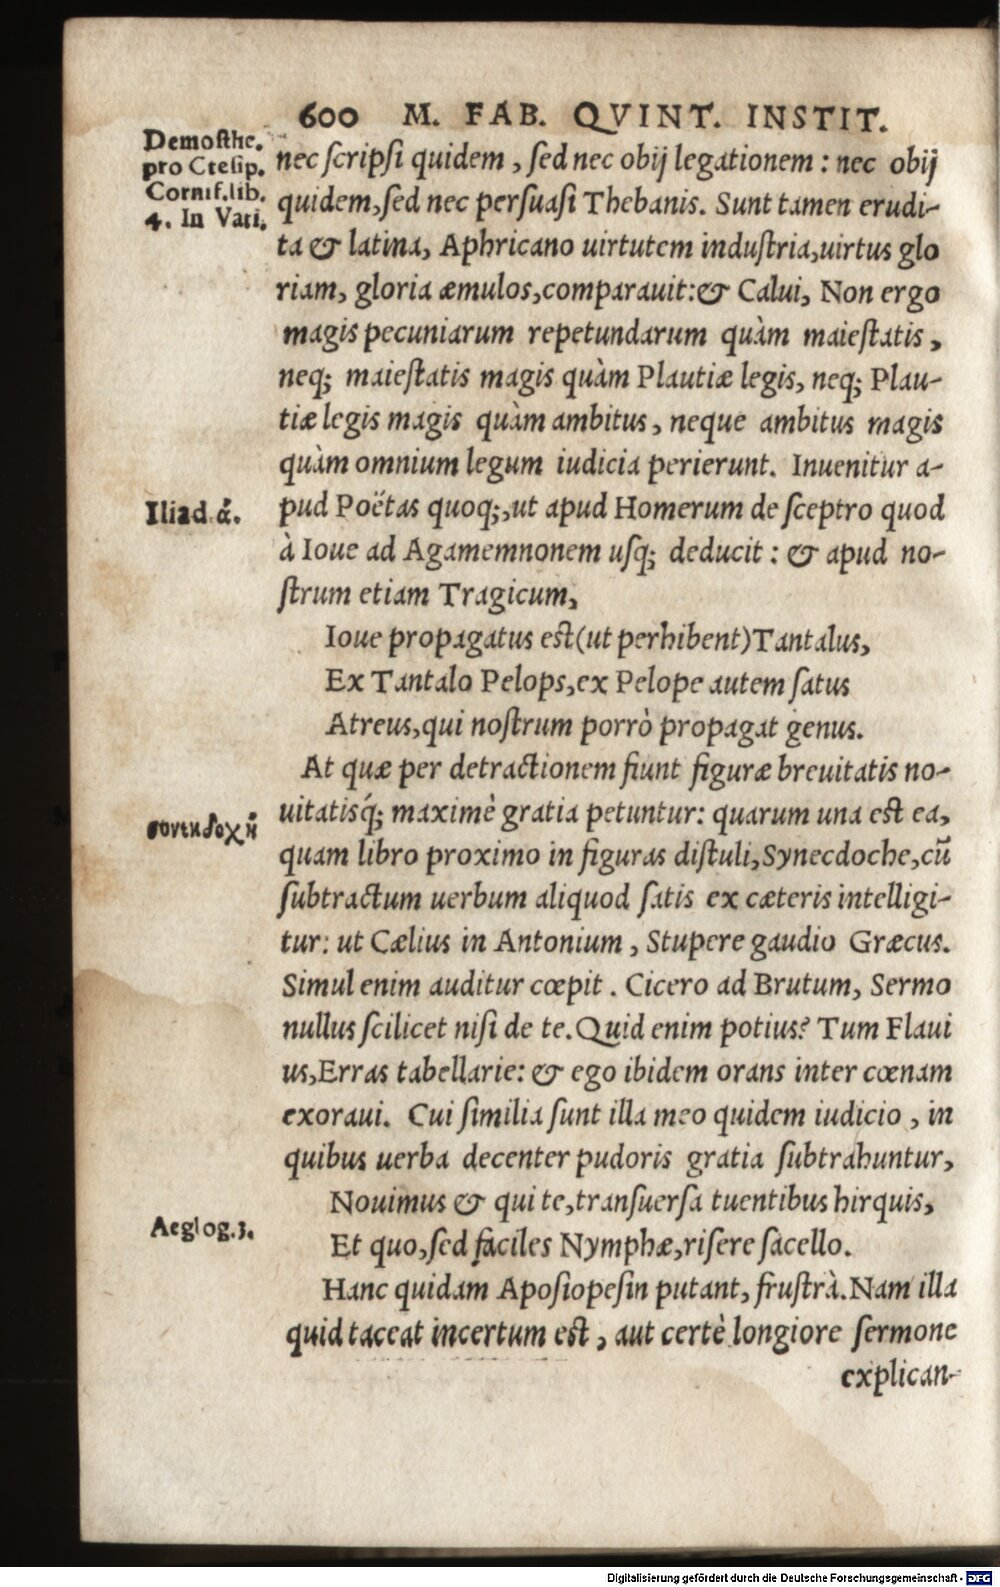 600 M. FAB. QVINT. INSTIT.
Demosthe.
pro Ctesip.
Cornif. lib.
4. In Vati.
nec scripsi quidem, sed nec obij legationem: nec obij
quidem, sed nec persuasi Thebanis. Sunt tamen erudi-
ta & latina, Aphricano uirtutem industria, uirtus glo
riam, gloria æmulos, comparauit: & Calui, Non ergo
magis pecuniarum repetundarum quàm maiestatis,
neq; maiestatis magis quàm Plautiæ legis, neq; Plau-
tiæ legis magis quàm ambitus, neque ambitus magis
quàm omnium legum iudicia perierunt. Inuenitur a-
Iliad. α΄.
pud Poëtas quoq;, ut apud Homerum de sceptro quod
à Ioue ad Agamemnonem usq; deducit: & apud no-
strum etiam Tragicum,
Ioue propagatus est (ut perhibent) Tantalus,
Ex Tantalo Pelops, ex Pelope autem satus
Atreus, qui nostrum porrò propagat genus.
At quæ per detractionem fiunt figuræ breuitatis no-
uitatisq́; maximè gratia petuntur: quarum una est ea,
συνεκδοχὴ
quam libro proximo in figuras distuli, Synecdoche, cū
subtractum uerbum aliquod satis ex cæteris intelligi-
tur: ut Cælius in Antonium, Stupere gaudio Græcus.
Simul enim auditur cœpit. Cicero ad Brutum, Sermo
nullus scilicet nisi de te. Quid enim potius? Tum Flaui
us, Erras tabellarie: & ego ibidem orans inter cœnam
exoraui. Cui similia sunt illa meo quidem iudicio, in
quibus uerba decenter pudoris gratia subtrahuntur,
Nouimus & qui te, transuersa tuentibus hirquis,
Aeglog. 3.
Et quo, sed faciles Nymphæ, risere sacello.
Hanc quidam Aposiopesin putant, frustrà. Nam illa
quid taceat incertum est, aut certè longiore sermone
explican-
Digitalisierung gefördert durch die Deutsche Forschungsgemeinschaft - DFG